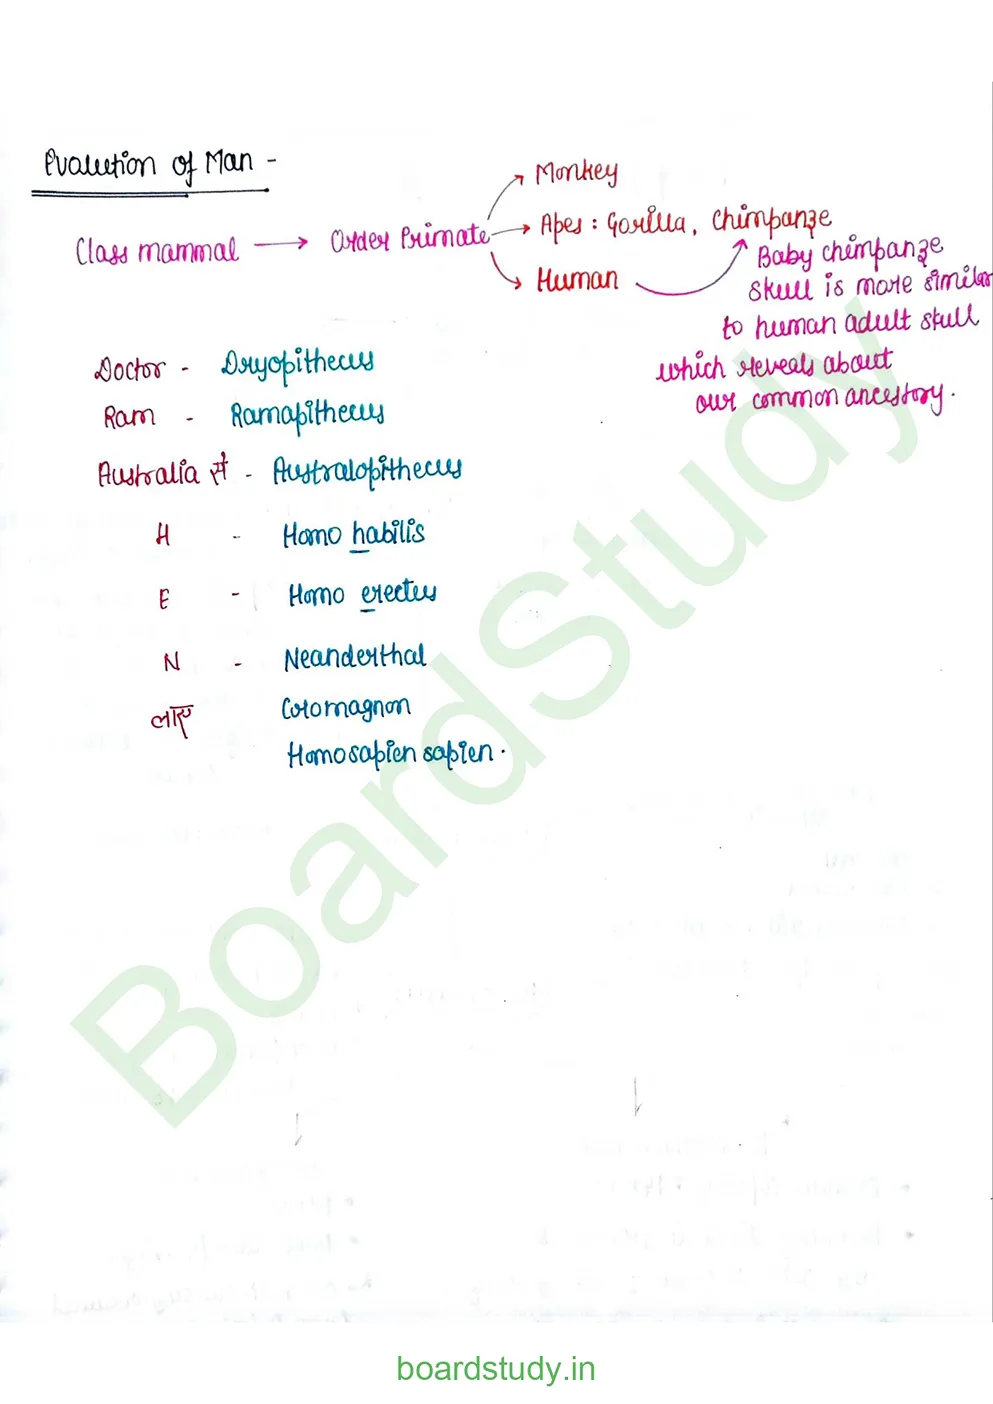 Evalution of Man -
Monkey
Class mammal → Order Primate → Apes : Gorilla, Chimpanze
Human
Baby chimpanze
skull is more similar
to human adult skull
which reveals about
our common ancestory.
Doctor - Dryopithecus
Ram - Ramapithecus
Australia से - Australopithecus
H - Homo habilis
E - Homo erectus
N - Neanderthal
लाए Cromagnon
Homosapien sapien.
BoardStudy
boardstudy.in